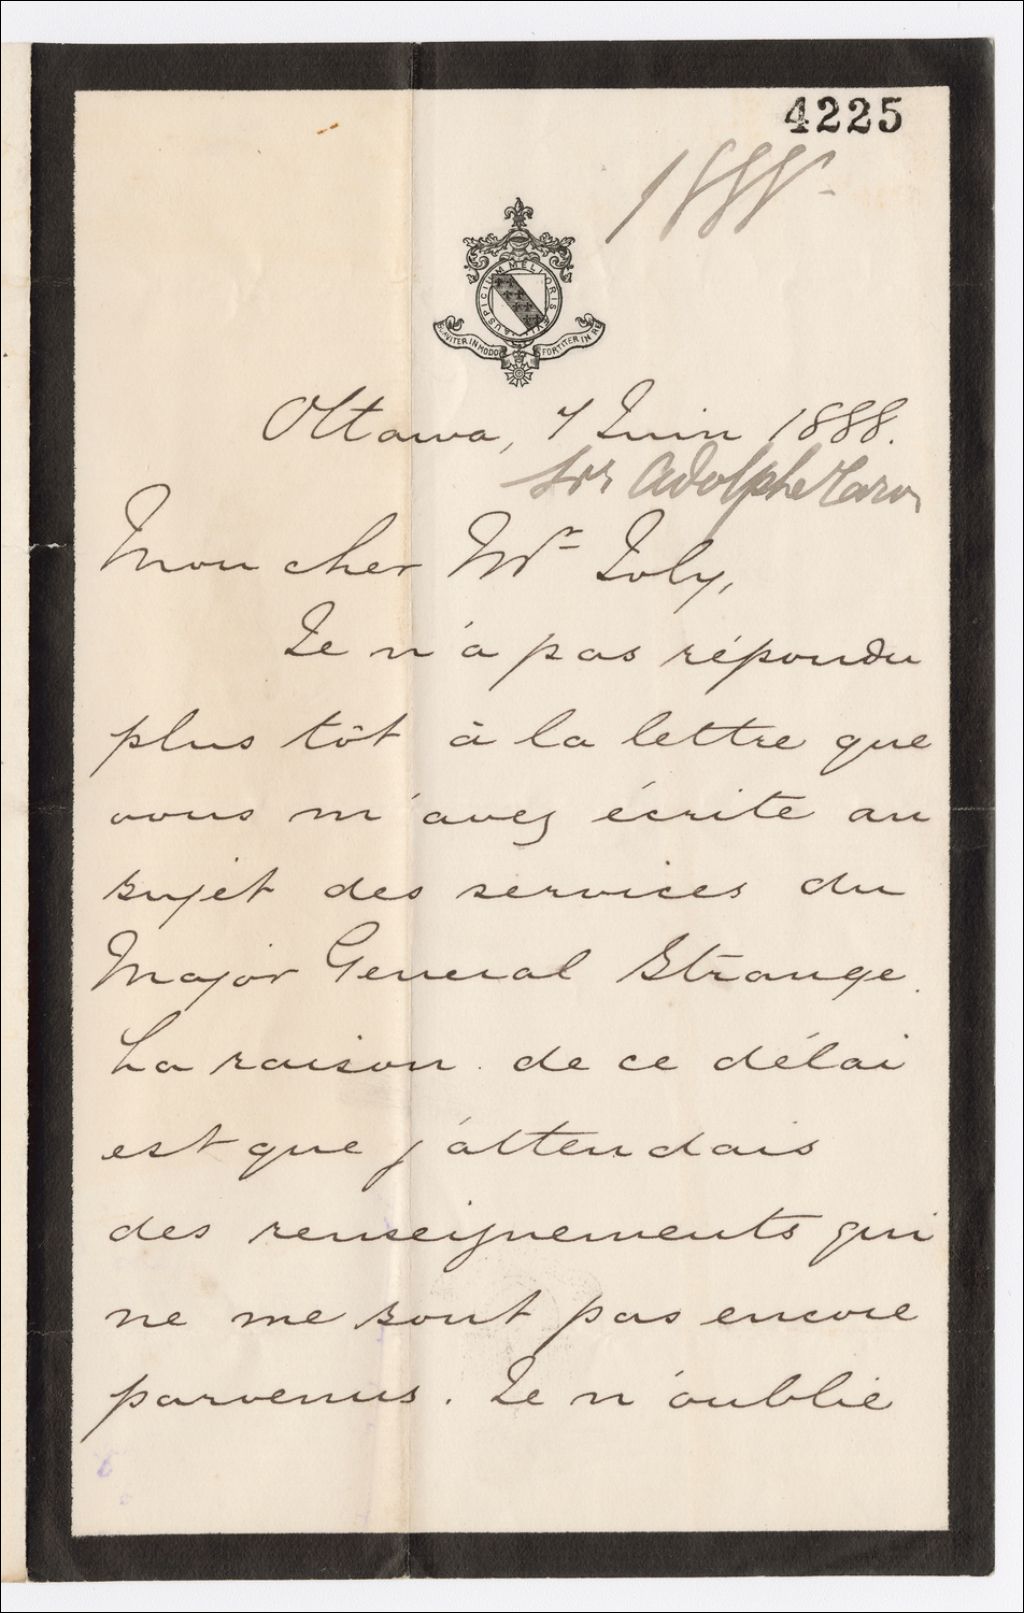 4225
1888
AUSPICIUM MELIORIS ÆVI
SUAVITER IN MODO FORTITER IN RE
Ottawa, 7 Juin 1888.
Sir Adolphe Caron
Mon cher Mr Joly,
Je n'a pas répondu
plus tôt à la lettre que
vous m'avez écrite au
sujet des services du
Major General Strange.
La raison de ce délai
est que j'attendais
des renseignements qui
ne me sont pas encore
parvenus. Je n'oublie